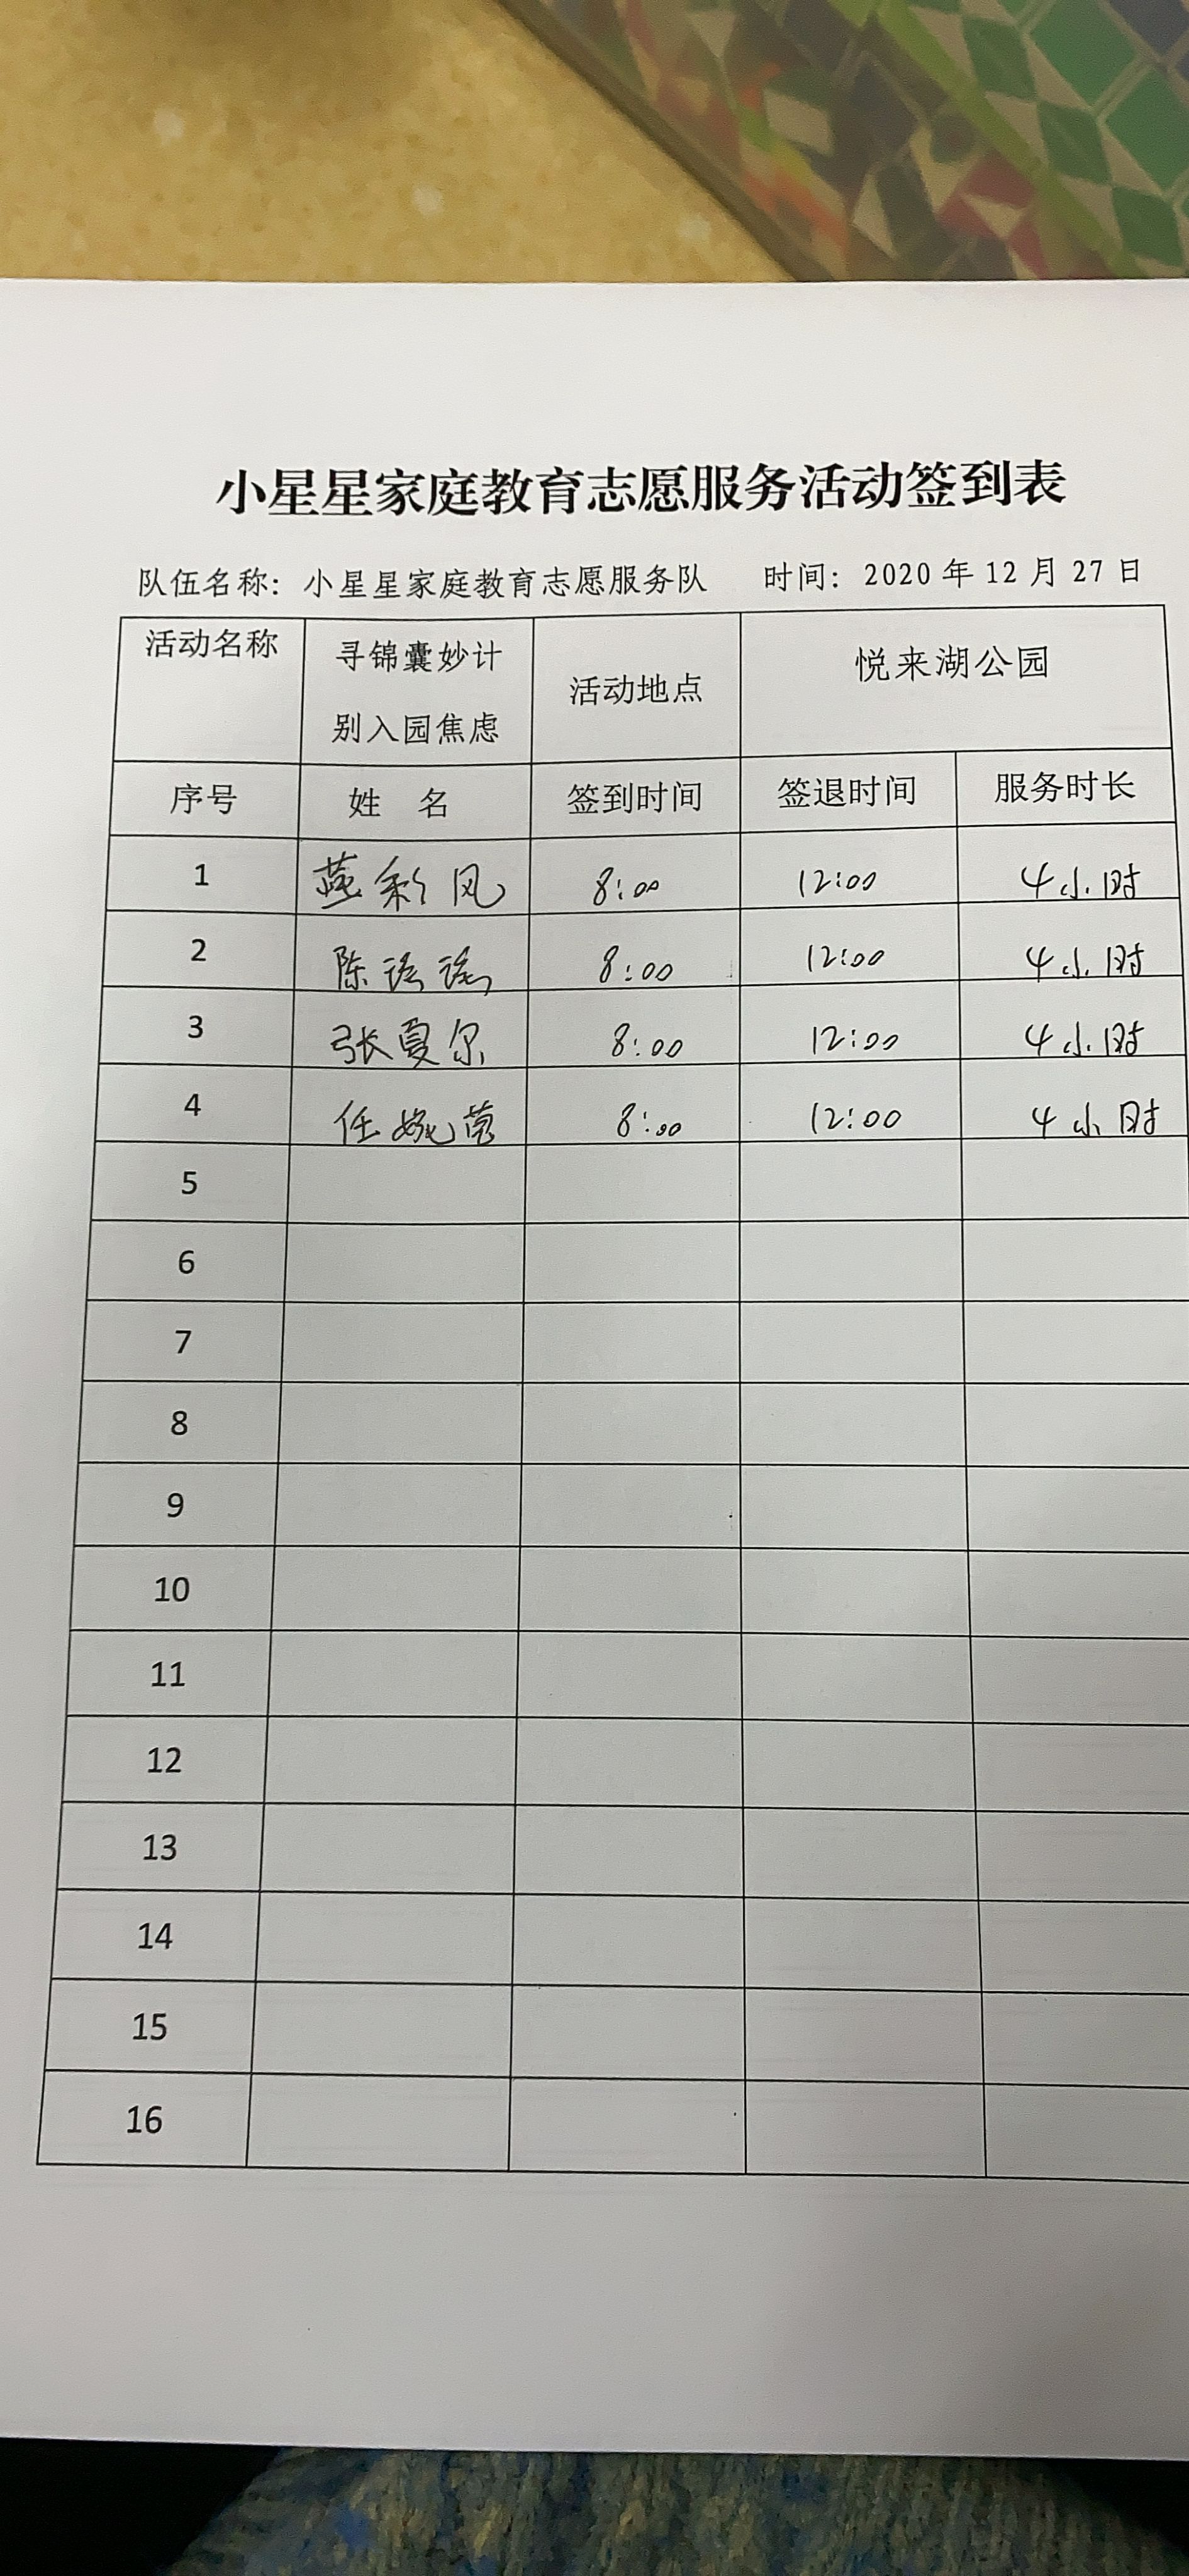 小星星家庭教育志愿服务活动签到表
队伍名称：小星星家庭教育志愿服务队 时间：2020年12月27日
活动名称 寻锦囊妙计 别入园焦虑 活动地点 悦来湖公园
序号 姓 名 签到时间 签退时间 服务时长
1 彩凤 8:00 12:00 4小时
2 陈瑶瑶 8:00 12:00 4小时
3 张夏尔 8:00 12:00 4小时
4 任婉莹 8:00 12:00 4小时
5
6
7
8
9
10
11
12
13
14
15
16